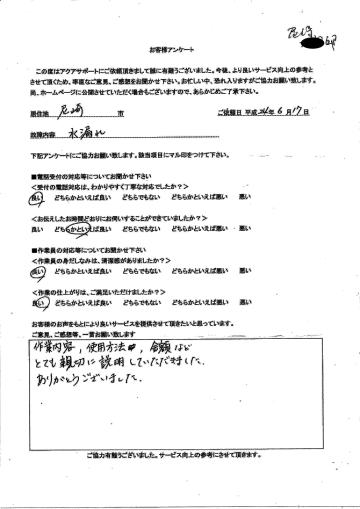 尼崎
お客様アンケート
この度はアクアサポートにご依頼頂きまして誠に有難うございました。今後、より良いサービス向上の参考と
させて頂くため、率直なご意見、ご感想をお聞かせ下さい。お忙しい中、恐れ入りますがご協力お願い致します。
尚、ホームページに公開させていただく場合もございますので、あらかじめご了承下さい。
居住地 尼崎 市 ご依頼日 平成 24年 6月 17日
故障内容 水漏れ
下記アンケートにご協力お願い致します。該当項目にマル印をつけて下さい。
■電話受付の対応等についてお聞かせ下さい
<受付の電話対応は、わかりやすく丁寧な対応でしたか?>
良い どちらかといえば良い どちらでもない どちらかといえば悪い 悪い
<お伝えしたお時間どおりにお伺いすることができていましたか?>
良い どちらかといえば良い どちらでもない どちらかといえば悪い 悪い
■作業員の対応等についてお聞かせ下さい
<作業員の身だしなみは、清潔感がありましたか?>
良い どちらかといえば良い どちらでもない どちらかといえば悪い 悪い
<作業の仕上がりは、ご満足いただけましたか?>
良い どちらかといえば良い どちらでもない どちらかといえば悪い 悪い
お客様のお声をもとにより良いサービスを提供させて頂きたいと思っています。
ご意見、ご感想等、一言お願い致します
作業内容、使用方法、金額など
とても親切に説明していただきました。
ありがとうございました。
ご協力有難うございました。サービス向上の参考にさせて頂きます。